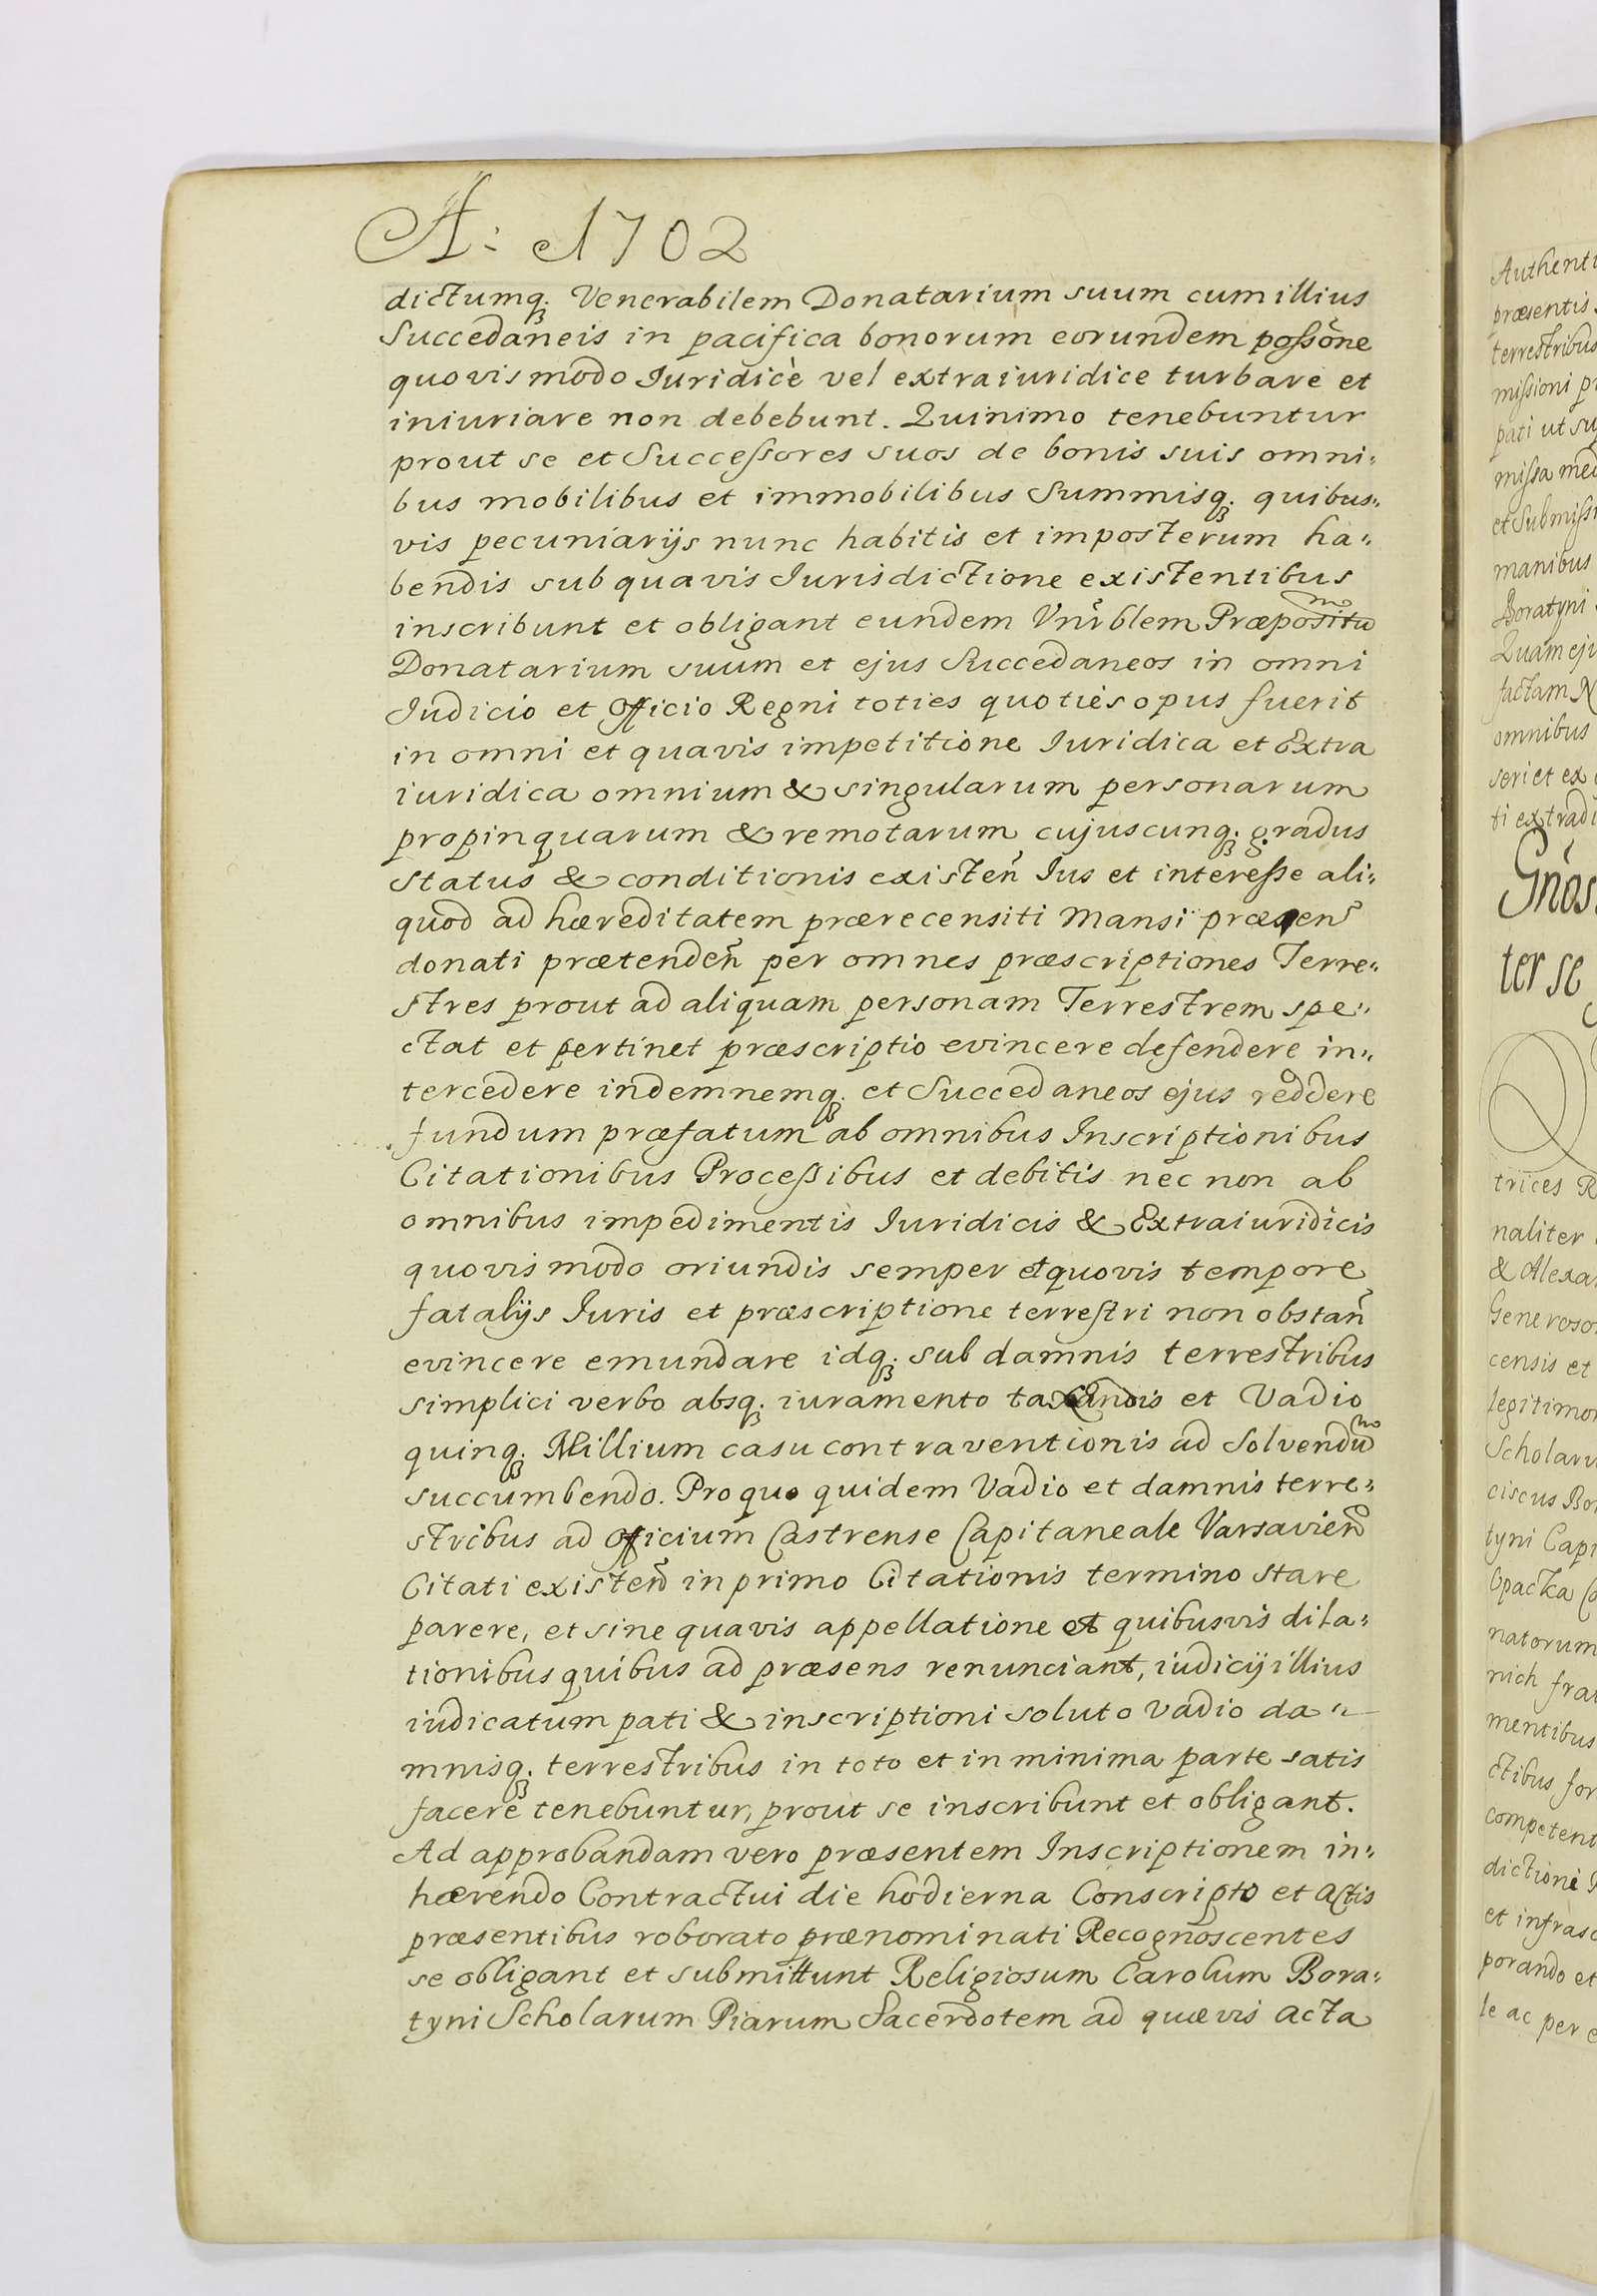 A: 1702
dictumq3. Venerabilem Donatarium suum cum illius
Succedaneis in pacifica bonorum eorundem possõne
quovismodo Iuridicè vel extraiuridice turbare et
iniuriare non debebunt. Quinimo tenebuntur
prout se et Successores suos de bonis suis omni„
bus mobilibus et immobilibus Summisq3. quibus„
vis pecuniarijs nunc habitis et imposterum ha„
bendis sub quavis Iurisdictione existentibus
inscribunt et obligant eundem Vnrblem Præpositũ
Donatarium suum et ejus Succedaneos in omni
Iudicio et Officio Regni toties quoties opus fuerit
in omni et quavis impetitione Iuridica et Extra
iuridica omnium & singularum personarum
propinquarum & remotarum cujuscunq3. gradus
status & conditionis existeñ Ius et interesse ali„
quod ad hæreditatem prærecensiti Mansi præseñ
donati prætendeñ per omnes præscriptiones Terre„
stres prout ad aliquam personam Terrestrem spe„
ctat et pertinet præscriptio evincere defendere in„
tercedere indemnemq3. et Succedaneos ejus reddere
fundum præfatum ab omnibus Inscriptionibus
Citationibus Processibus et debitis nec non ab
omnibus impedimentis Iuridicis & Extraiuridicis
quovismodo oriundis semper et quovis tempore
fatalijs Iuris et præscriptione terrestri non obstañ
evincere emundare idq3. sub damnis terrestribus
simplici verbo absq3. iuramento taxandis et Vadio
quinq3. Millium casu contraventionis ad solvendũ
succumbendo. Pro quo quidem Vadio et damnis terre„
stribus ad Officium Castrense Capitaneale Varsavieñ
Citati existeñ in primo Citationis termino stare
parere, et sine quavis appellatione et quibusvis dila„
tionibus quibus ad præsens renunciant, iudicij illius
iudicatum pati & inscriptioni soluto Vadio da„
mnisq3. terrestribus in toto et in minima parte satis
facere tenebuntur, prout se inscribunt et obligant.
Ad approbandam vero præsentem Inscriptionem in„
hærendo Contractui die hodierna Conscripto et Actis
præsentibus roborato prænominati Recognoscentes
se obligant et submittunt Religiosum Carolum Bora„
tyni Scholarum Piarum Sacerdotem ad quævis Acta
præsentis
terrestribus
missioni
pati ut
missa
manibus
Boratyni
Quam
factam
omnibus
seri et ex
Gños
ter se
trices
naliter
censis et
ciscus
tyni
natorum
nich
mentibus
ctibus
dictioni
porando et
le ac per